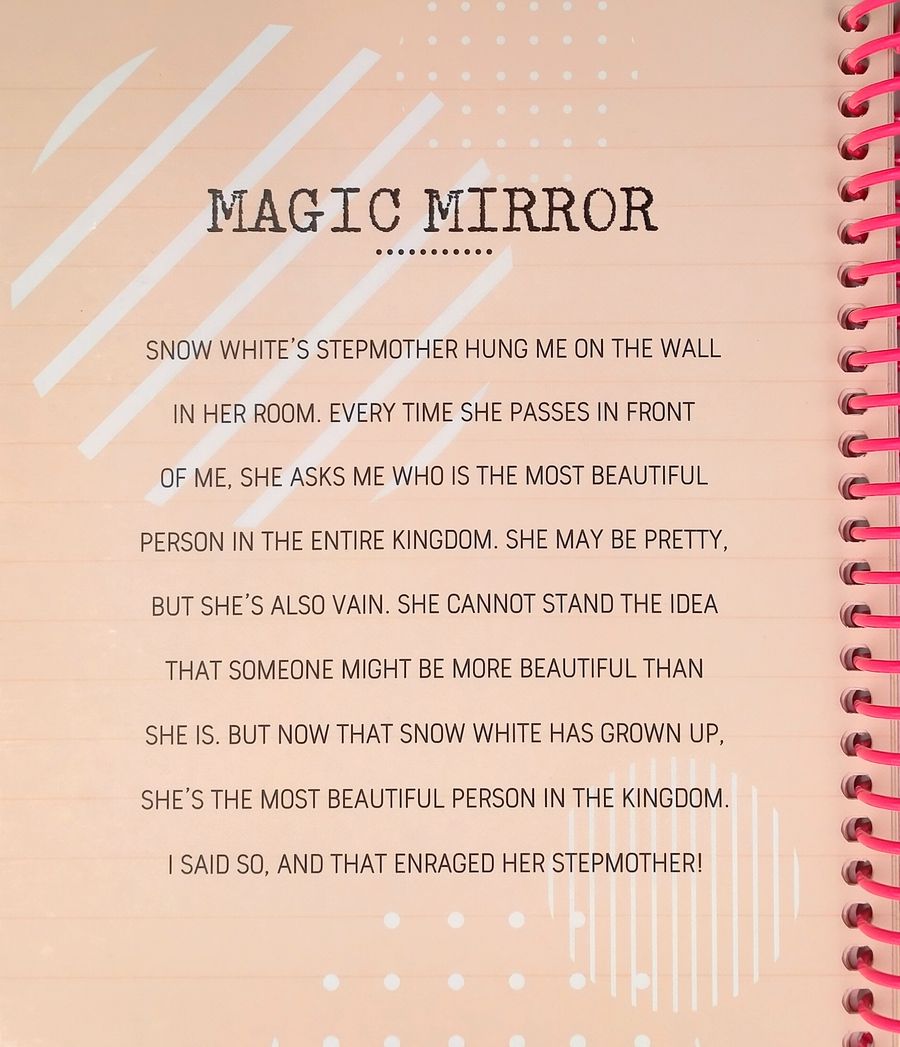 MAGIC MIRROR
SNOW WHITE'S STEPMOTHER HUNG ME ON THE WALL
IN HER ROOM. EVERY TIME SHE PASSES IN FRONT
OF ME, SHE ASKS ME WHO IS THE MOST BEAUTIFUL
PERSON IN THE ENTIRE KINGDOM. SHE MAY BE PRETTY,
BUT SHE'S ALSO VAIN. SHE CANNOT STAND THE IDEA
THAT SOMEONE MIGHT BE MORE BEAUTIFUL THAN
SHE IS. BUT NOW THAT SNOW WHITE HAS GROWN UP,
SHE'S THE MOST BEAUTIFUL PERSON IN THE KINGDOM.
I SAID SO, AND THAT ENRAGED HER STEPMOTHER!